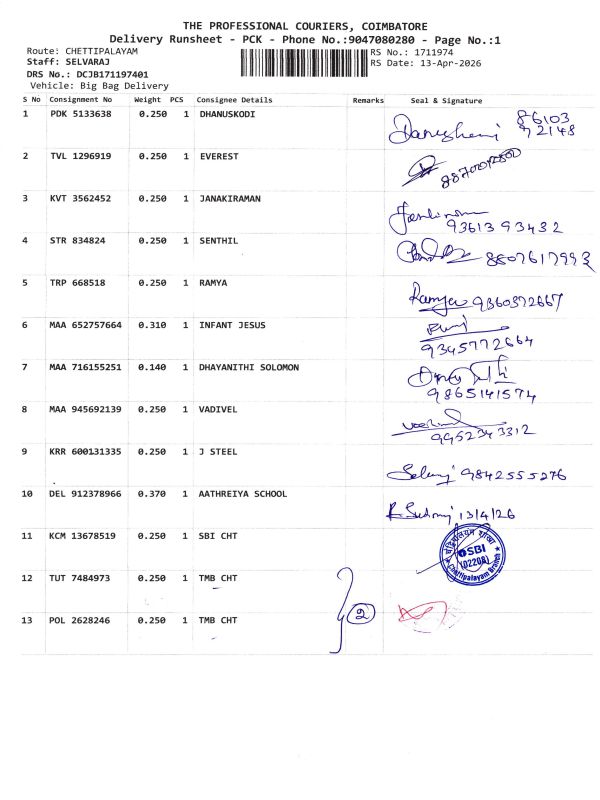 THE PROFESSIONAL COURIERS, COIMBATORE
Delivery Runsheet - PCK - Phone No.:9047080280 - Page No.:1
Route: CHETTIPALAYAM RS No.: 1711974
Staff: SELVARAJ RS Date: 13-Apr-2026
DRS No.: DCJB171197401
Vehicle: Big Bag Delivery
S No Consignment No Weight PCS Consignee Details Remarks Seal & Signature
1 PDK 5133638 0.250 1 DHANUSKODI 86103
92148
2 TVL 1296919 0.250 1 EVEREST
3 KVT 3562452 0.250 1 JANAKIRAMAN
9361393432
4 STR 834824 0.250 1 SENTHIL 8807617993
5 TRP 668518 0.250 1 RAMYA Ramya 9360372667
6 MAA 652757664 0.310 1 INFANT JESUS
9345772664
7 MAA 716155251 0.140 1 DHAYANITHI SOLOMON
9865141574
8 MAA 945692139 0.250 1 VADIVEL
9952343312
9 KRR 600131335 0.250 1 J STEEL
9842555276
10 DEL 912378966 0.370 1 AATHREIYA SCHOOL
13/4/26
11 KCM 13678519 0.250 1 SBI CHT SBI
Chettipalayam Branch
12 TUT 7484973 0.250 1 TMB CHT
2
13 POL 2628246 0.250 1 TMB CHT